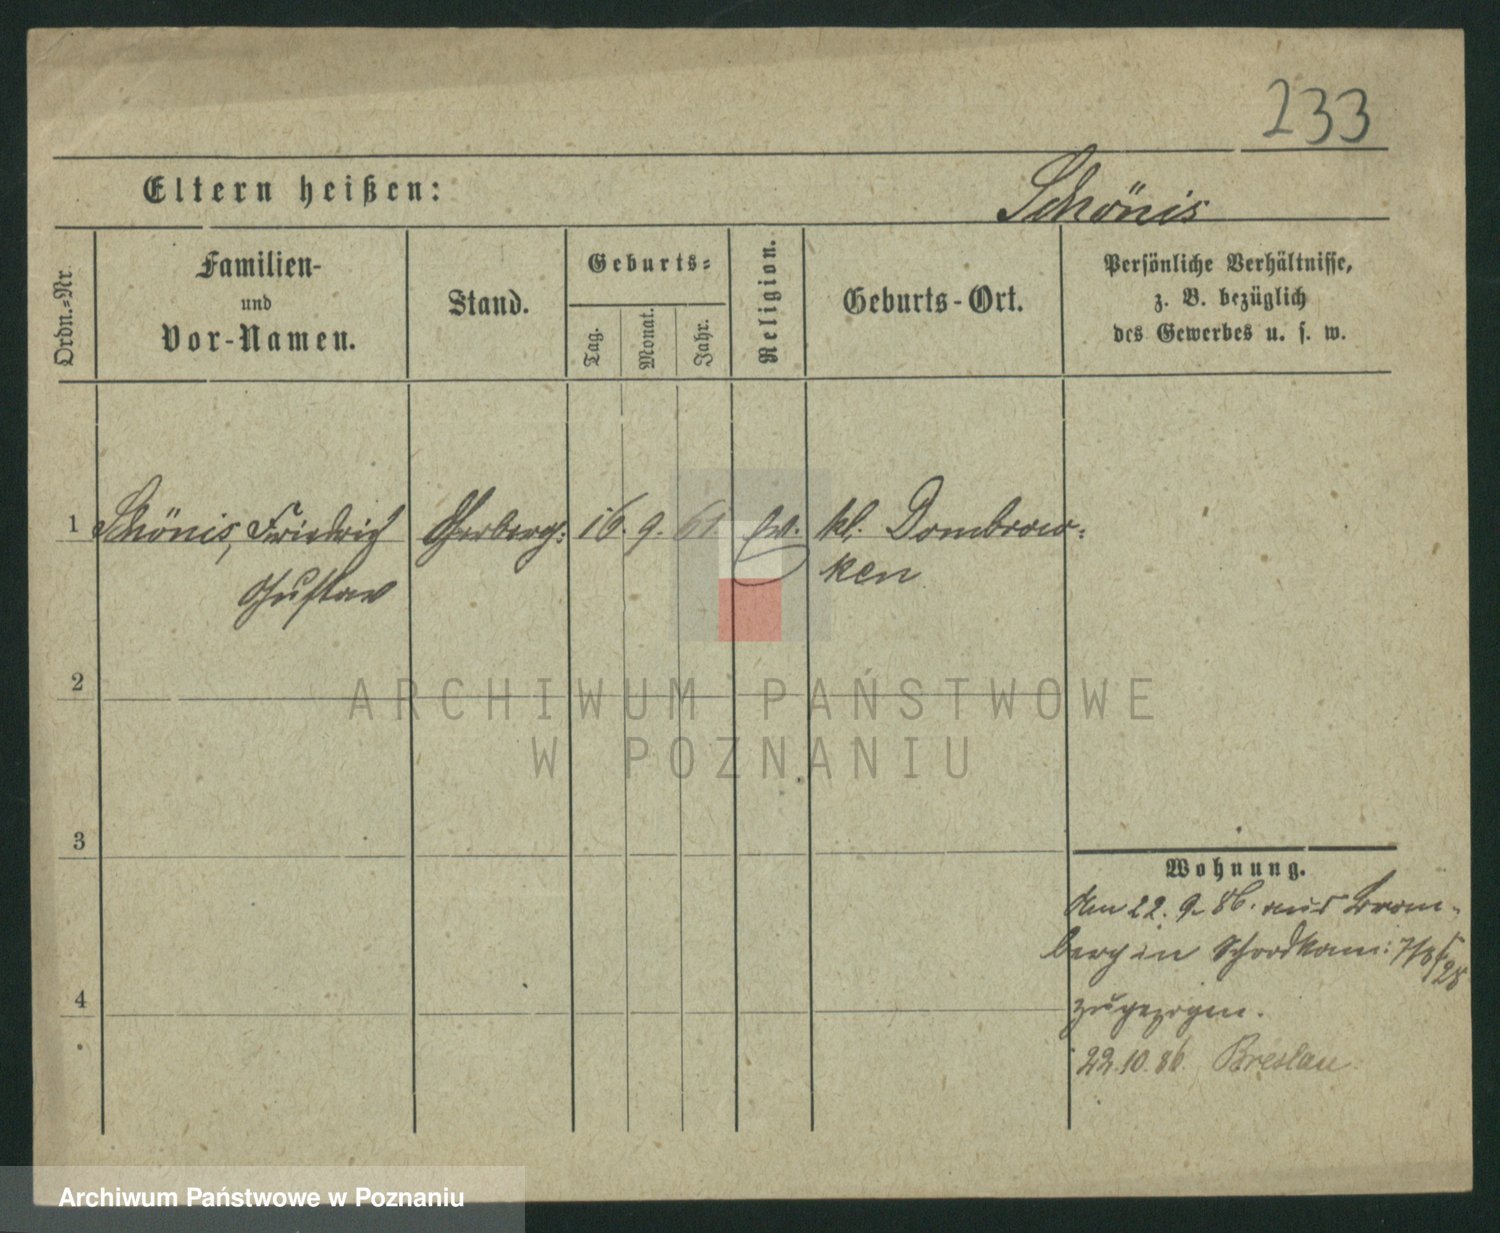 233
Eltern heißen:
Schönis
Ordn.-Nr.
Familien-
und
Vor-Namen.
Stand.
Geburts-
Tag.
Monat.
Jahr.
Religion.
Geburts-Ort.
Persönliche Verhältnisse,
z. B. bezüglich
des Gewerbes u. s. w.
1 Schönis, Friedrich 16. 9. 61. ev. kl. Dombrow-
Gustav ken
2
ARCHIWUM PAŃSTWOWE
W POZNANIU
3
Wohnung.
Am 22. 9. 86. aus Brom-
berg in
4
zugezogen.
22.10.86. Breslau
Archiwum Państwowe w Poznaniu